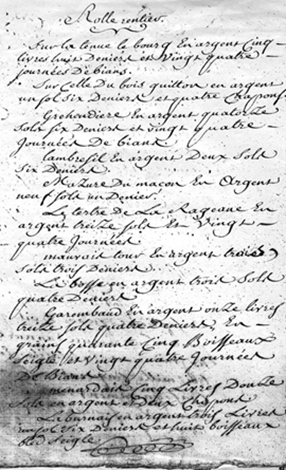 Rolle rentier.
Sur la tenue le bourg En argent Cinq
livres huit Deniers et Vingt quatre
journées De bians.
Sur Celle Du bois quillon en argent
un sol Six Deniers et quatre Chapons.
Grohendiere En argent quatorze
Sols six Deniers et vingt quatre
Journées De bians
Cambresil en argent Deux Sols
Six Deniers.
Mazure Du macon En Argent
neuf sols un Denier.
Le tertre de La Rageane En
argent treize sols Et Vingt
quatre Journées
mauvais tour En argent trois
Sols trois Deniers.
La basse en argent trois Sols
quatre Deniers
Garombaud En argent onze livres
treize sols quatre Deniers, En
grains quarante Cinq Boisseaux
Seigle et Vingt quatre Journées
De Bians
menardais Cinq Livres Douze
Sols en argent et deux Chapons
Le tournais en argent trois Livres
un sol Six Deniers et huit boisseaux
bled Seigle